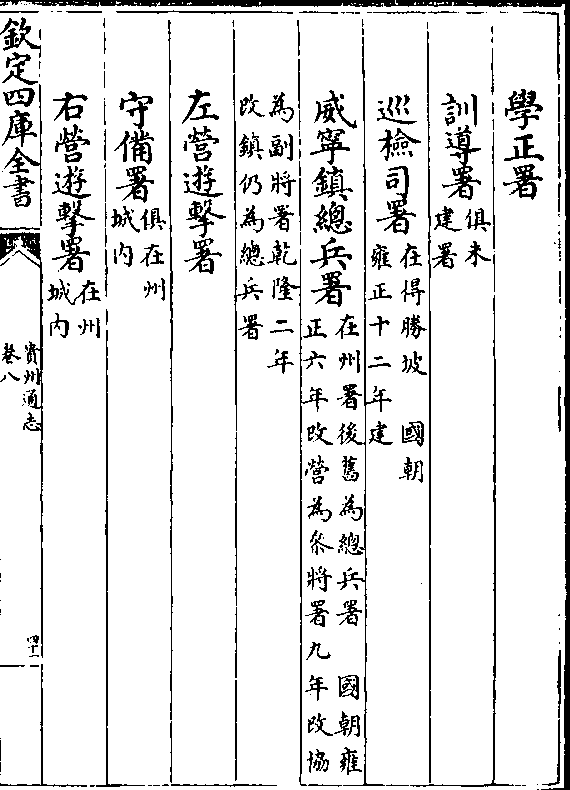 學正署
訓導署俱未建署
巡檢司署在得勝坡 國朝雍正十二年建
威寧鎮總兵署在州署後舊為總兵署 國朝雍正六年改營為叅將署九年改協
為副將署乾隆二年改鎮仍為總兵署
左營遊擊署
守備署俱在州城内
右營遊擊署在州城内
欽定四庫全書
貴州通志
卷八
四十一